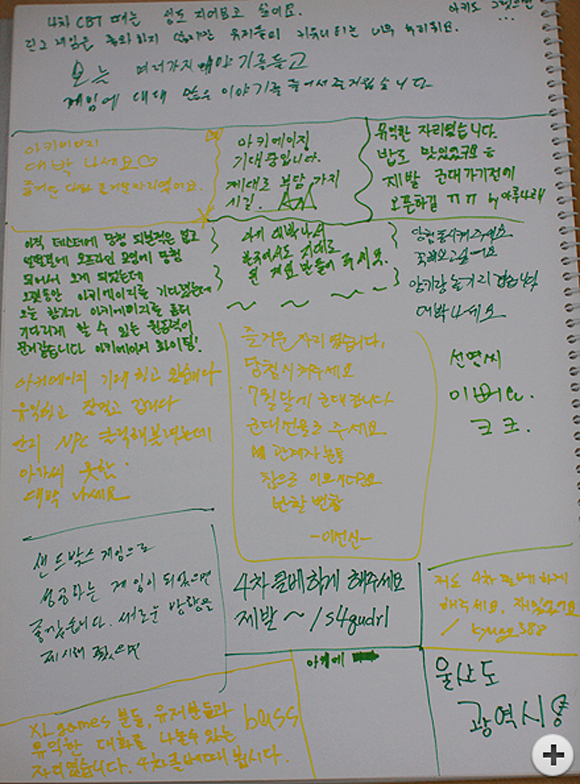 4차 CBT 때는 성도 지어보고 싶어요.
아키도 그랬으면
...
린그 게임은 좋아하지 않지만 유저들이 커뮤니티는 너무 부러워요.
오늘 여러가지 얘기를 듣고
게임에 대해 많은 이야기를 들어서 즐거웠습니다.
아키에이지
대박 나세요♡
즐거운 자리였어요.
아키에이징
기대중입니다.
제대로 부담 가지
시길.
유익한 자리였습니다.
밥도 맛있었구요
제발 군대가기전에
오픈하길 ㅠㅠ by 아루나래
아직 테스터에 당첨 되본적은 없고
오프라인 모임에 당첨
되어서 오게 되었는데
오랫동안 아키에이지를 기다렸는데
오늘 참가가 아키에이지를 좀더
기다리게 할 수 있는 원동력이
된거같습니다 아키에이지 화이팅!
대박나서
한국에서도 제대로
된 게임 만들어 주세요.
~ ~ ~ ~
당첨
대박나세요
아키에이지 기대 하고 있습니다
유익하고 잘먹고 갑니다
NPC 클릭해볼랬는데
아가씨 못함.
대박 나세요
즐거운 자리 였습니다.
당첨시켜주세요
7월달에 군대갑니다
군대선물로 주세요
관계자분들
참으로 이쁘시네요
번창 번창
-이선신-
선연씨
이뻐요.
ㅋㅋ.
샌드박스 게임으로
성공하는 게임이 되었으면
좋겠습니다. 새로운 방향을
제시해 줬으면
4차클베하게 해주세요
제발~ /s4gudrl
저도 4차클베하게
해주세요. 재밌었어요
/ kyung388
아키에
울산도
광역시야
XLgames 분들, 유저분들과
유익한 대화를 나눌수있는
자리였습니다. 4차클베때 봅시다.
bass